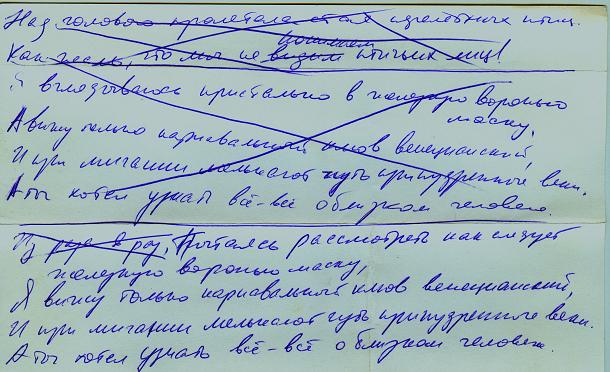 Над головою пролетала стая перелётных птиц.
помним
Как жаль, что мы не видим птичьих лиц!
Я вглядываюсь пристально в калергую воронью
маску,
А вижу только карнавальный клюв венецианский,
И при мигании мелькают чуть припудренные веки.
А ты хотел узнать всё-всё о близком человеке.
Из раза в раз, Пытаясь рассмотреть как следует
воронью маску,
Я вижу только карнавальный клюв венецианский,
И при мигании мелькают чуть припудренные веки.
А ты хотел узнать всё-всё о близком человеке.